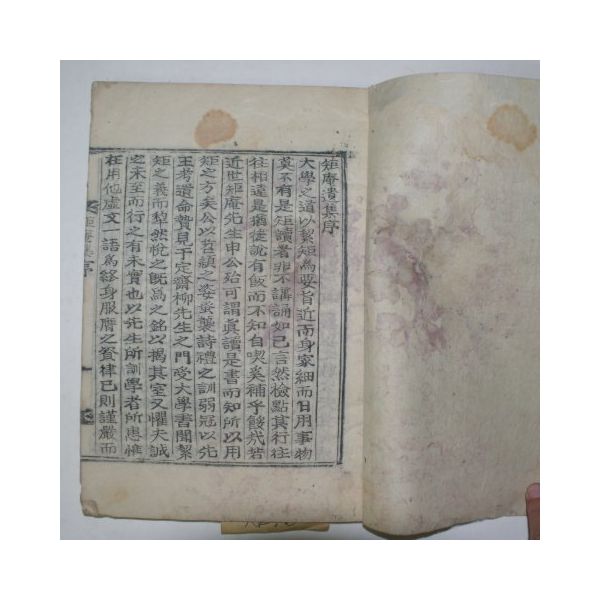 矩庵遺集序
大學之道以絜矩為要旨近而身家細而日用事物
莫不有是矩讀者非不講誦如己言然檢點其行往
往相遠是猶徒說有飯而不知自喫奚補乎餒哉若
近世矩庵先生申公殆可謂眞讀是書而知所以用
矩之方矣公以哲穎之姿蚤襲詩禮之訓弱冠以先
王考遺命贄見于定齋柳先生之門受大學書聞絜
矩之義而犂然悅之旣爲之銘以揭其室又懼夫誠
之未至而行之有未實也以先生所訓學者所患惟
在用他虛文一語爲終身服膺之資律己則謹嚴而
矩庵集 序